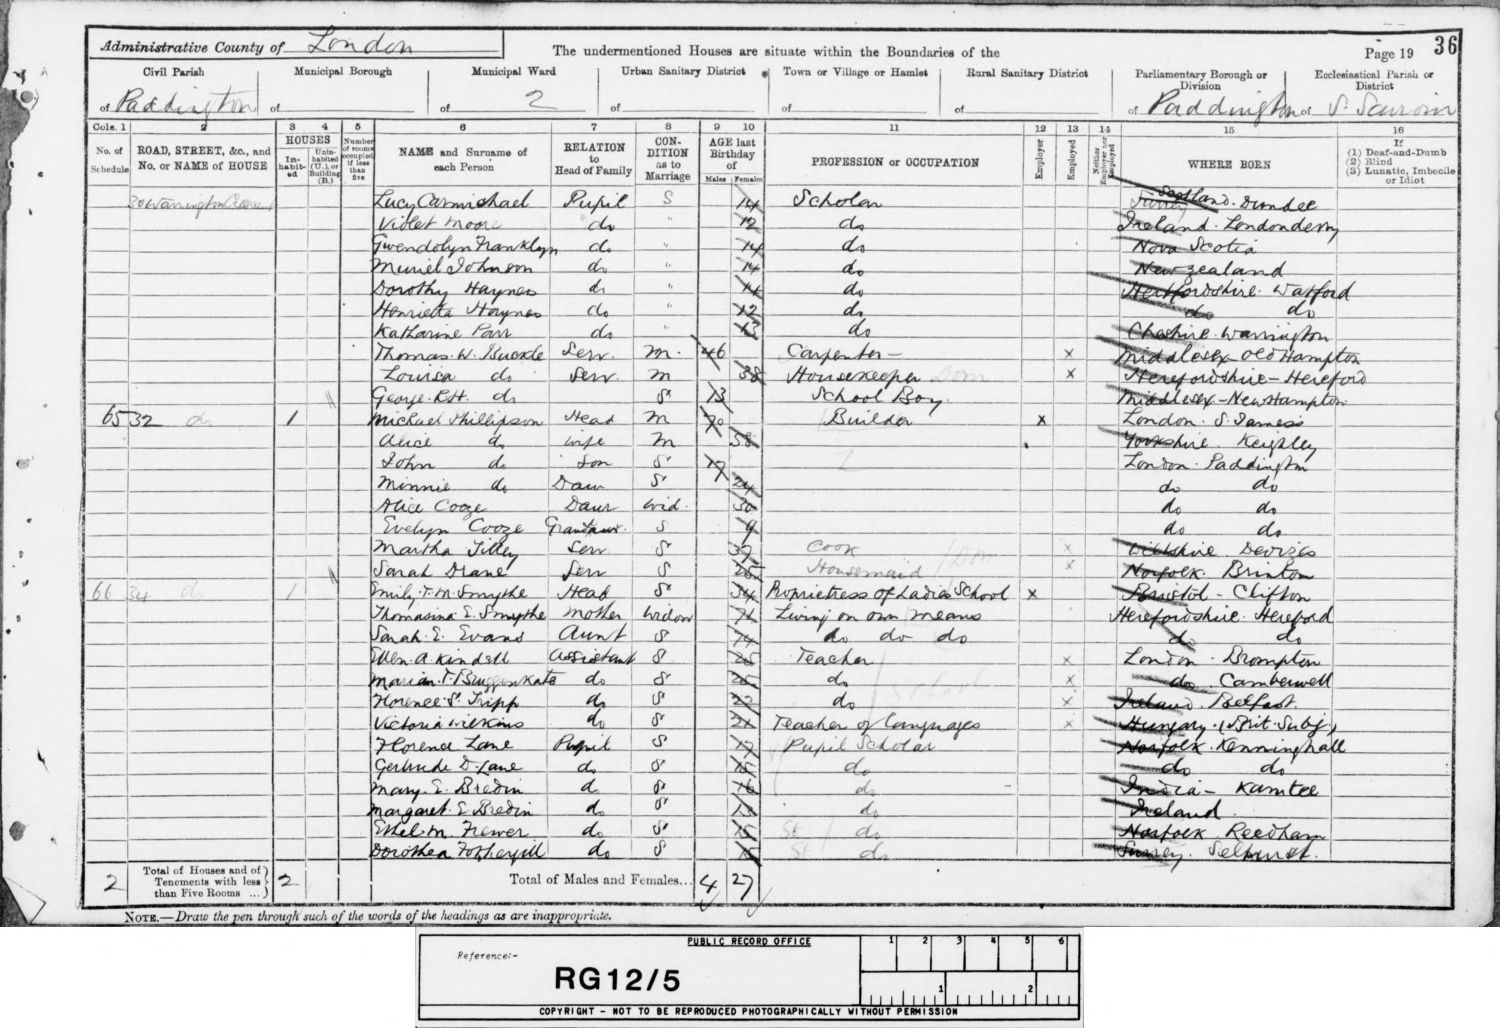 Administrative County of London
The undermentioned Houses are situate within the Boundaries of the
Page 19 36
Civil Parish
of Paddington
Municipal Borough
of
Municipal Ward
of 2
Urban Sanitary District
of
Town or Village or Hamlet
of
Rural Sanitary District
of
Parliamentary Borough or Division
of Paddington
Ecclesiastical Parish or District
of S.
Cols. 1 2 3 4 5 6 7 8 9 10 11 12 13 14 15 16
No. of Schedule
ROAD, STREET, &c., and No. or NAME of HOUSE
HOUSES
In-habit-ed
Unin-habited (U.), or Building (B.)
Number of rooms occupied if less than five
NAME and Surname of each Person
RELATION to Head of Family
CON-DITION as to Marriage
AGE last Birthday of
Males Females
PROFESSION or OCCUPATION
Employer
Employed
Neither Employer nor Employed
WHERE BORN
If
(1) Deaf-and-Dumb
(2) Blind
(3) Lunatic, Imbecile or Idiot
30 Warrington Crescent Lucy Carmichael Pupil S 14 Scholar Surrey Scotland. Dundee
Violet Moore do " 12 do Ireland. Londonderry
Gwendolyn Franklyn do " 14 do Nova Scotia
Muriel Johnson do " 14 do New zealand
Dorothy Haynes do " 14 do Hertfordshire. Watford
Henrietta Haynes do " 12 do do do
Katharine Parr do " 13 do Cheshire. Warrington
Thomas. W. Buckle Serv. M. 46 Carpenter x Middlesex Old Hampton
Louisa do Serv. M 38 Housekeeper Dom x Herefordshire - Hereford
George. R.H. do S 13 School Boy Middlesex - New Hampton
65 32 do 1 Michael Phillipson Head M 70 Builder x London. S. James's
Alice do wife M 58 Yorkshire. Keighley
John do Son S 19 London. Paddington
Minnie do Daur S 24 do do
Alice Cooze Daur wid. 30 do do
Evelyn Cooze Grandaur. S 9 do do
Martha Tilley Serv S 37 Cook Dom x Wiltshire. Devizes
Sarah Drane Serv S 25 Housemaid x Norfolk. Brinton
66 34 do 1 Emily. F. M. Smythe Head S 34 Proprietress of Ladies School x Bristol - Clifton
Thomasina E. Smythe Mother Widow 71 Living on own means Herefordshire. Hereford
Sarah. E. Evans Aunt S 74 do do do do do
Ellen. A. Kindell Assistant S 25 Teacher x London. Brompton
Marian. T. Bruggenkate do S 25 do School x do. Camberwell
Florence. S. Tripp do S 22 do x Ireland. Belfast
Victoria Wilkins do S 21 Teacher of languages x Hungary. (Brit. Subj.)
Florence Lane Pupil S 17 Pupil Scholar Norfolk. Kenninghall
Gertrude D. Lane do S 15 do do do
Mary. E. Bredin do S 16 do India - Kamtee
Margaret. E. Bredin do S 13 do Ireland.
Ethel. M. Frewer do S 15 do Norfolk. Reedham
Dorothea Fothergill do S 15 do Surrey. Selhurst.
2 Total of Houses and of Tenements with less than Five Rooms ... 2 Total of Males and Females... 4 27
NOTE.—Draw the pen through such of the words of the headings as are inappropriate.
PUBLIC RECORD OFFICE
1 2 3 4 5 6
Reference:-
RG12/5
1 2
COPYRIGHT - NOT TO BE REPRODUCED PHOTOGRAPHICALLY WITHOUT PERMISSION